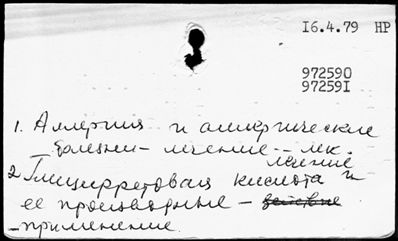 I6.4.79 HP
972590
97259I
1. Аллергия и аллергические
болезни - лечение -- лек.
лечение
2 Глицирретовая кислота и
ее производные - действие
- применение